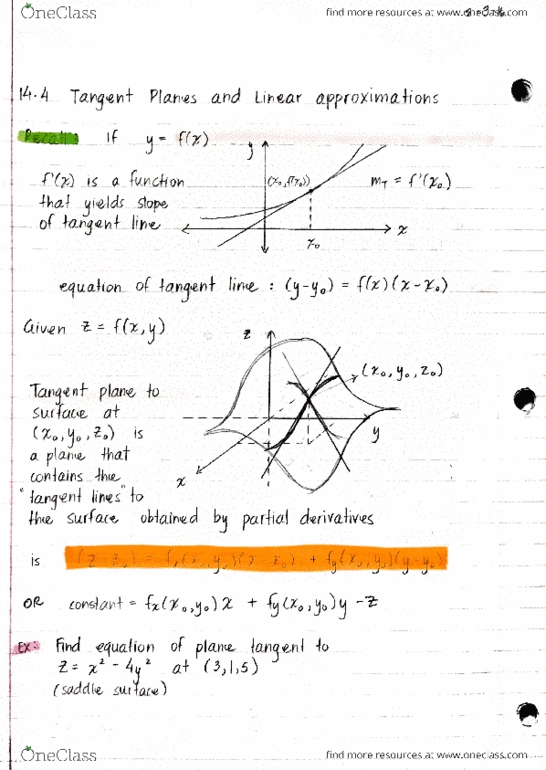 OneClass
find more resources at www.oneclass.com
14.4 Tangent Planes and Linear approximations
Recall: If y = f(x)
y
f'(x) is a function
that yields slope
of tangent line
(x₀, f(x₀))
m_T = f'(x₀)
x
x₀
equation of tangent line : (y-y₀) = f(x)(x-x₀)
Given z = f(x,y)
z
(x₀, y₀, z₀)
y
x
Tangent plane to
surface at
(x₀, y₀, z₀) is
a plane that
contains the
"tangent lines" to
the surface obtained by partial derivatives
is (z-z₀) = fₓ(x₀, y₀)(x-x₀) + f_y(x₀, y₀)(y-y₀)
OR constant = fₓ(x₀, y₀)x + f_y(x₀, y₀)y - z
Ex: Find equation of plane tangent to
z = x² - 4y² at (3,1,5)
(saddle surface)
OneClass
find more resources at www.oneclass.com